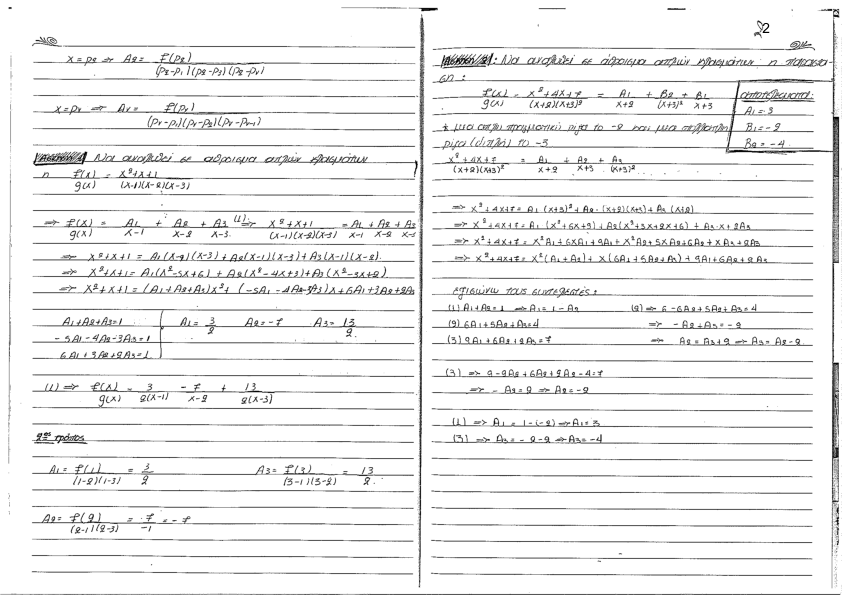 x = ρ₂ ⇒ A₂ = f(ρ₂) / (ρ₂-ρ₁)(ρ₂-ρ₃)(ρ₂-ρᵥ)
x = ρᵥ ⇒ Aᵥ = f(ρᵥ) / (ρᵥ-ρ₁)(ρᵥ-ρ₂)(ρᵥ-ρᵥ₋₁)
Να αναλυθεί σε άθροισμα απλών κλασμάτων
η f(x)/g(x) = x²+x+1 / (x-1)(x-2)(x-3)
⇒ f(x)/g(x) = A₁/x-1 + A₂/x-2 + A₃/x-3 (1)⇒ x²+x+1 / (x-1)(x-2)(x-3) = A₁/x-1 + A₂/x-2 + A₃/x-3
⇒ x²+x+1 = A₁(x-2)(x-3) + A₂(x-1)(x-3) + A₃(x-1)(x-2)
⇒ x²+x+1 = A₁(x²-5x+6) + A₂(x²-4x+3) + A₃(x²-3x+2)
⇒ x²+x+1 = (A₁+A₂+A₃)x² + (-5A₁-4A₂-3A₃)x + 6A₁+3A₂+2A₃
A₁+A₂+A₃=1 A₁ = 3/2 A₂ = -7 A₃ = 13/2
-5A₁-4A₂-3A₃=1
6A₁+3A₂+2A₃=1
(1) ⇒ f(x)/g(x) = 3/2(x-1) - 7/x-2 + 13/2(x-3)
2ος τρόπος
A₁ = f(1)/(1-2)(1-3) = 3/2 A₃ = f(3)/(3-1)(3-2) = 13/2
A₂ = f(2)/(2-1)(2-3) = 7/-1 = -7
22
: Να αναλυθεί σε άθροισμα απλών κλασμάτων η παράστα-
ση:
f(x)/g(x) = x²+4x+7 / (x+2)(x+3)² = A₁/x+2 + B₂/(x+3)² + B₁/x+3
αποτελέσματα:
A₁=3
B₁=-2
B₂=-4
* μια απλή πραγματική ρίζα το -2 και μια
ρίζα (διπλή) το -3
x²+4x+7 / (x+2)(x+3)² = A₁/x+2 + A₂/x+3 + A₃/(x+3)²
⇒ x²+4x+7 = A₁(x+3)² + A₂·(x+2)(x+3) + A₃(x+2)
⇒ x²+4x+7 = A₁(x²+6x+9) + A₂(x²+3x+2x+6) + A₃·x+2A₃
⇒ x²+4x+7 = x²A₁+6xA₁+9A₁+x²A₂+5xA₂+6A₂+xA₃+2A₃
⇒ x²+4x+7 = x²(A₁+A₂) + x(6A₁+5A₂+A₃) + 9A₁+6A₂+2A₃
εξισώνω τους συντελεστές:
(1) A₁+A₂=1 ⇒ A₁=1-A₂ (2) ⇒ 6-6A₂+5A₂+A₃=4
(2) 6A₁+5A₂+A₃=4 ⇒ -A₂+A₃=-2
(3) 9A₁+6A₂+2A₃=7 ⇒ A₂=A₃+2 ⇒ A₃=A₂-2
(3) ⇒ 9-9A₂+6A₂+2A₂-4=7
⇒ -A₂=2 ⇒ A₂=-2
(1) ⇒ A₁=1-(-2) ⇒ A₁=3
(3) ⇒ A₃=-2-2 ⇒ A₃=-4